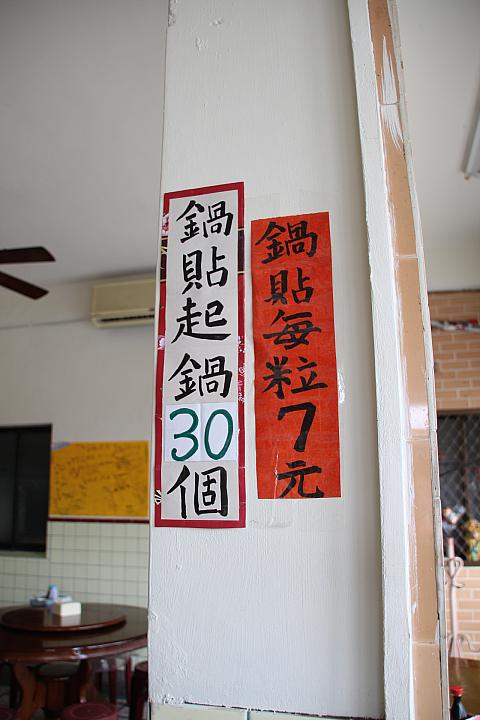 鍋貼每粒7元
鍋貼起鍋30個